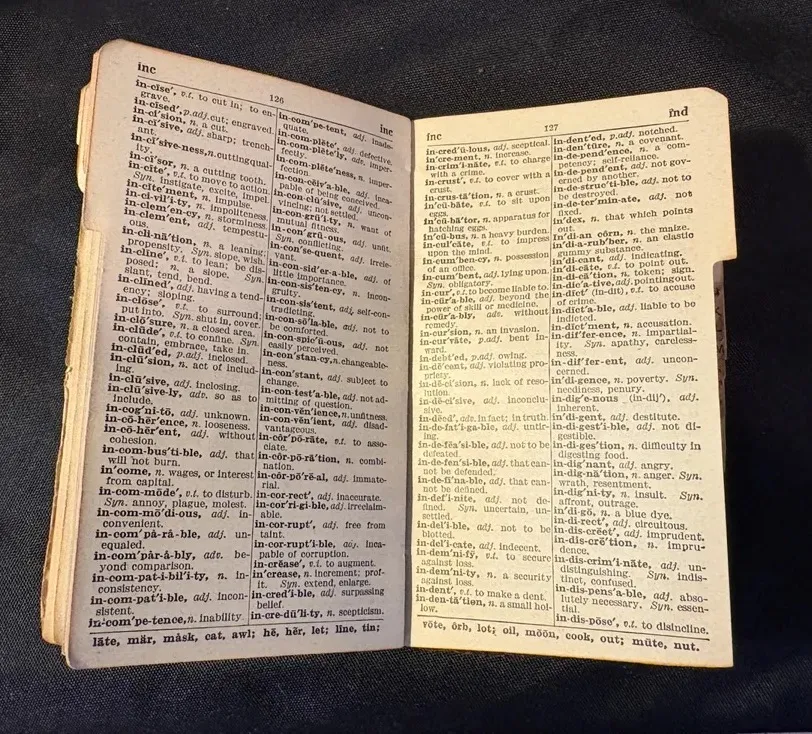 inc
126
inc
in-cise', v.t. to cut in; to en-
grave.
in-cised', p.adj. cut; engraved.
in-ci'sion, n. a cut.
in-cī'sive, adj. sharp; trench-
ant.
in-cī'sive-ness, n. cuttingqual-
ity.
in-cī'sor, n. a cutting tooth.
in-cīte', v.t. to move to action.
Syn. instigate, excite, impel.
in-cīte'ment, n. impulse.
in-ci-vil'i-ty, n. impoliteness.
in-clem'en-cy, n. storminess.
in-clem'ent, adj. tempestu-
ous.
in-cli-nā'tion, n. a leaning;
propensity. Syn. slope, wish.
in-clīne', v.t. to lean; be dis-
posed; n. a slope. Syn.
slant, tend, bend.
in-clīned', adj. having a tend-
ency; sloping.
in-clōse', v.t. to surround;
put into. Syn. shut in, cover.
in-clō'sure, n. a closed area.
in-clūde', v.t. to confine. Syn.
contain, embrace, take in.
in-clūd'ed, p.adj. inclosed.
in-clū'sion, n. act of includ-
ing.
in-clū'sive, adj. inclosing.
in-clū'sive-ly, adv. so as to
include.
in-cog'ni-tō, adj. unknown.
in-cō-hēr'ence, n. looseness.
in-cō-hēr'ent, adj. without
cohesion.
in-com-bus'ti-ble, adj. that
will not burn.
in'come, n. wages, or interest
from capital.
in-com-mōde', v.t. to disturb.
Syn. annoy, plague, molest.
in-com-mō'di-ous, adj. in-
convenient.
in-com'pȧ-rȧ-ble, adj. un-
equaled.
in-com'pȧr-ȧ-bly, adv. be-
yond comparison.
in-com-pat-i-bil'i-ty, n. in-
consistency.
in-com-pat'i-ble, adj. incon-
sistent.
in-com'pe-tence, n. inability.
in-com'pe-tent, adj. inade-
quate.
in-com-plēte', adj. defective.
in-com-plēte'ly, adv. imper-
fectly.
in-com-plēte'ness, n. imper-
fection.
in-con-cēiv'a-ble, adj. inca-
pable of being conceived.
in-con-clū'sive, adj. uncon-
vincing; not settled.
in-con-grū'i-ty, n. want of
mutual fitness.
in-con'grṳ-ous, adj. unfit.
Syn. conflicting.
in-con'se-quent, adj. irrele-
vant.
in-con-sid'er-a-ble, adj. of
little importance.
in-con-sis'ten-cy, n. incon-
gruity.
in-con-sis'tent, adj. self-con-
tradicting.
in-con-sōl'a-ble, adj. not to
be comforted.
in-con-spic'ū-ous, adj. not
easily perceived.
in-con'stan-cy, n. changeable-
ness.
in-con'stant, adj. subject to
change.
in-con-test'a-ble, adj. not ad-
mitting of question.
in-con-vēn'ience, n. unfitness.
in-con-vēn'ient, adj. disad-
vantageous.
in-côr'pō-rāte, v.t. to asso-
ciate.
in-côr-pō-rā'tion, n. combi-
nation.
in-côr-pō'rē-al, adj. immate-
rial.
in-cor-rect', adj. inaccurate.
in-cor'ri-gi-ble, adj. irreclaim-
able.
in-cor-rupt', adj. free from
taint.
in-cor-rupt'i-ble, adj. inca-
pable of corruption.
in-crēase', v.t. to augment.
in'crease, n. increment; prof-
it. Syn. extend, enlarge.
in-cred'i-ble, adj. surpassing
belief.
in-cre-dū'li-ty, n. scepticism.
lāte, mär, mȧsk, cat, awl; hē, hẽr, let; līne, tin;
inc
127
ind
in-cred'ū-lous, adj. sceptical.
in'cre-ment, n. increase.
in-crim'i-nāte, v.t. to charge
with a crime.
in-crust', v.t. to cover with a
crust.
in-crus-tā'tion, n. a crust.
in'cū-bāte, v.t. to sit upon
eggs.
in'cū-bā'tor, n. apparatus for
hatching eggs.
in'cū-bus, n. a heavy burden.
in-cul'cāte, v.t. to impress
upon the mind.
in-cum'ben-cy, n. possession
of an office.
in-cum'bent, adj. lying upon.
Syn. obligatory.
in-cur', v.t. to become liable to.
in-cūr'a-ble, adj. beyond the
power of skill or medicine.
in-cūr'a-bly, adv. without
remedy.
in-cur'sion, n. an invasion.
in-cur'vāte, p.adj. bent in-
ward.
in-debt'ed, p.adj. owing.
in-dē'cent, adj. violating pro-
priety.
in-dē-ci'sion, n. lack of reso-
lution.
in-dē-cī'sive, adj. inconclu-
sive.
in-dēed', adv. in fact; in truth.
in-de-fat'i-ga-ble, adj. untir-
ing.
in-de-fēa'si-ble, adj. not to be
defeated.
in-de-fen'si-ble, adj. that can-
not be defended.
in-de-fī'na-ble, adj. that can-
not be defined.
in-def'i-nite, adj. not de-
fined. Syn. uncertain, un-
settled.
in-del'i-ble, adj. not to be
blotted.
in-del'i-cate, adj. indecent.
in-dem'ni-fȳ, v.t. to secure
against loss.
in-dem'ni-ty, n. a security
against loss.
in-dent', v.t. to make a dent.
in-den-tā'tion, n. a small hol-
low.
in-dent'ed, p.adj. notched.
in-den'tūre, n. a covenant.
in-de-pend'ence, n. a com-
petency; self-reliance.
in-de-pend'ent, adj. not gov-
erned by another.
in-de-struc'ti-ble, adj. not to
be destroyed.
in-de-ter'min-ate, adj. not
fixed.
in'dex, n. that which points
out.
In'di-an côrn, n. the maize.
in'di-a-rub'ber, n. an elastic
gummy substance.
in'di-cant, adj. indicating.
in'di-cāte, v.t. to point out.
in-di-cā'tion, n. token; sign.
in-dic'a-tive, adj. pointing out.
in-dict' (in-dīt'), v.t. to accuse
of crime.
in-dict'a-ble, adj. liable to be
indicted.
in-dict'ment, n. accusation.
in-dif'fer-ence, n. impartial-
ity. Syn. apathy, careless-
ness.
in-dif'fer-ent, adj. uncon-
cerned.
in'di-gence, n. poverty. Syn.
neediness, penury.
in-dig'e-nous (in-dij'), adj.
inherent.
in'di-gent, adj. destitute.
in-di-gest'i-ble, adj. not di-
gestible.
in-di-ges'tion, n. difficulty in
digesting food.
in-dig'nant, adj. angry.
in-dig-nā'tion, n. anger. Syn.
wrath, resentment.
in-dig'ni-ty, n. insult. Syn.
affront, outrage.
in'di-gō, n. a blue dye.
in-di-rect', adj. circuitous.
in-dis-crēet', adj. imprudent.
in-dis-crē'tion, n. impru-
dence.
in-dis-crim'i-nāte, adj. un-
distinguishing. Syn. indis-
tinct, confused.
in-dis-pens'a-ble, adj. abso-
lutely necessary. Syn. essen-
tial.
in-dis-pōse', v.t. to disincline.
vōte, ôrb, lot; oil, mōōn, cook, out; mūte, nut.